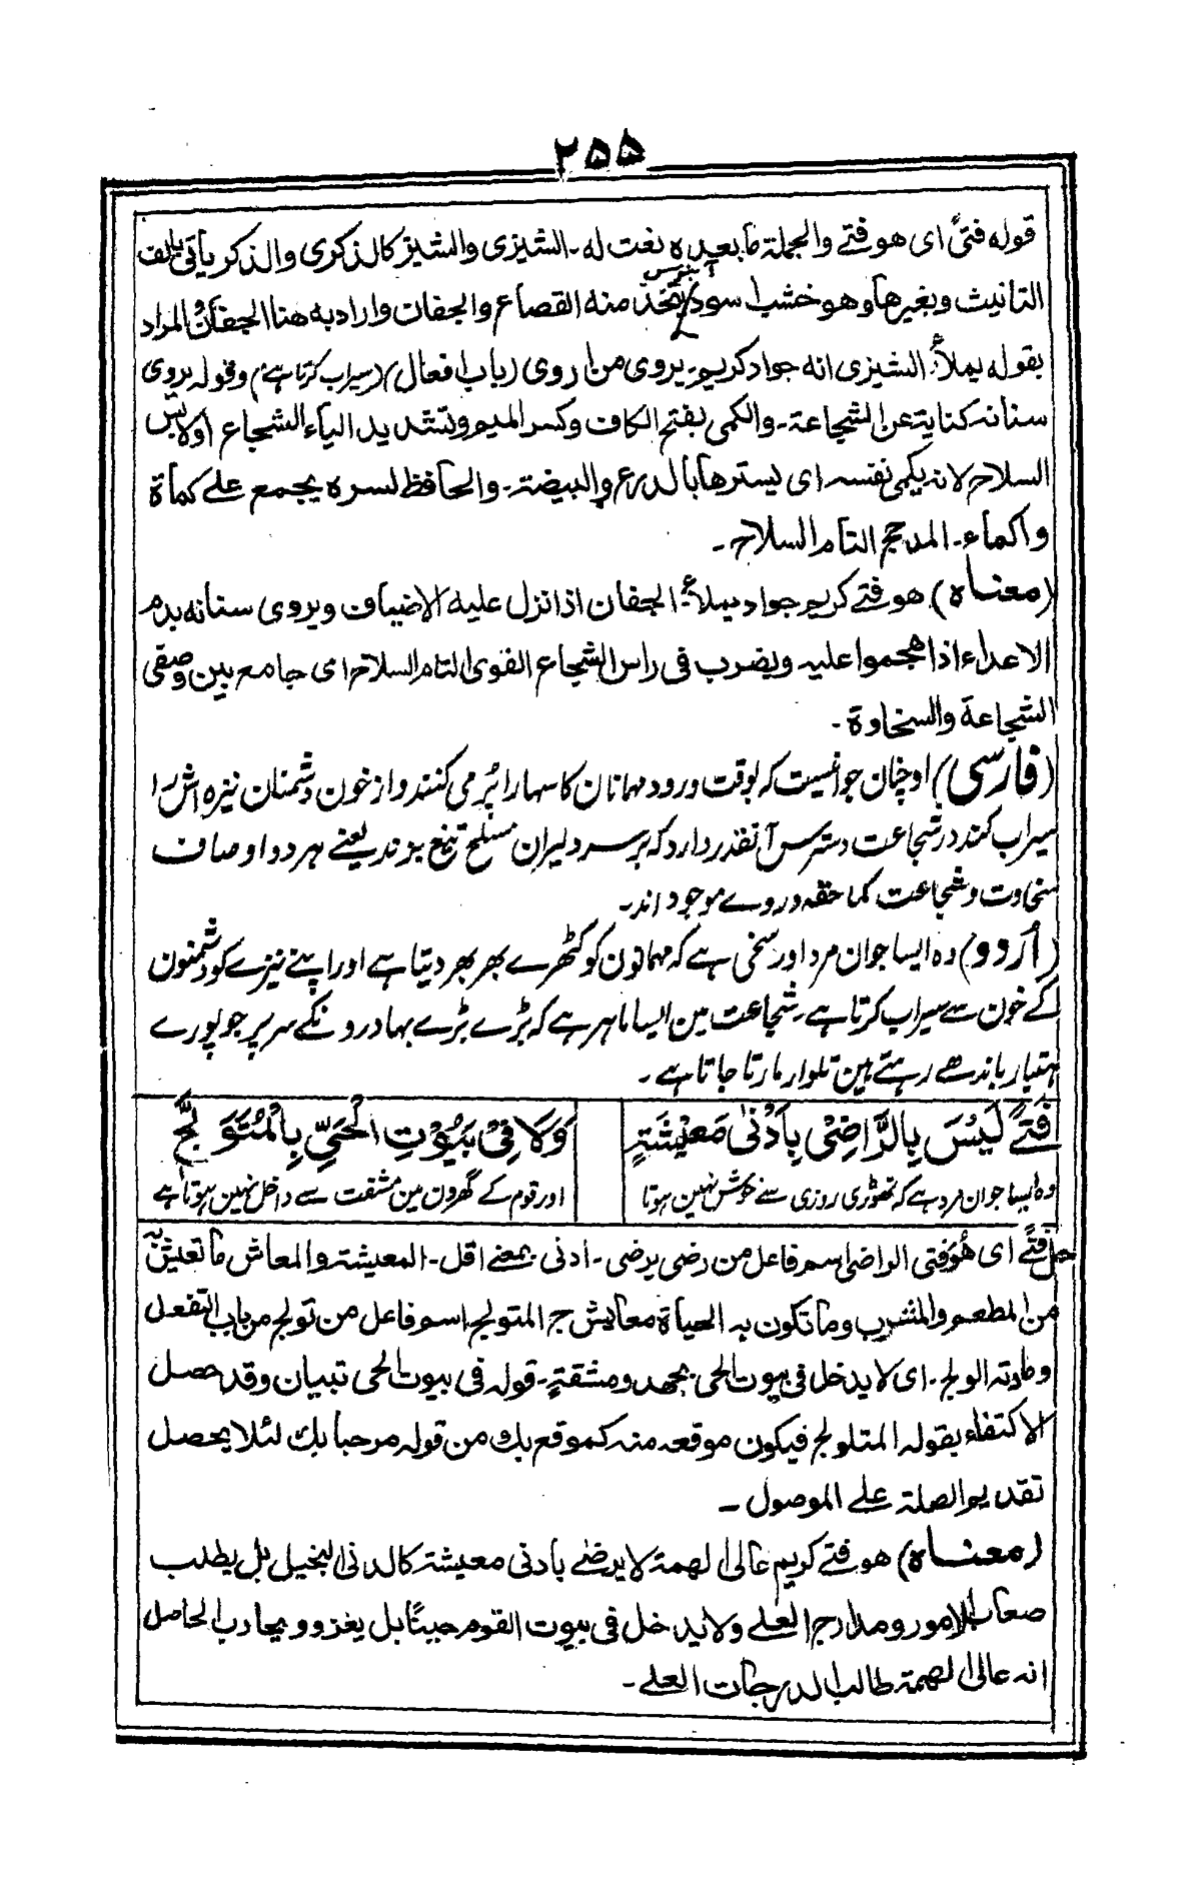 ۲۵۵
قوله فتیً ای هو فتے والجملة مابعده نعت له۔ الشیزی والشیز کالذکری والذکر یأتی بالف
التانیث وبغیرها وهو خشب اسود یتخذ منه القصاع والجفان واراد به هنا الجفان والمراد
آبنوس
بقوله یملأ الشیزی انه جواد کریم۔ یروی من اروی (باب افعال) (سیراب کرتا ہے) وقوله یروی
سنانه کنایة عن الشجاعة۔ والکمی بفتح الکاف وکسر المیم وتشدید الیاء الشجاع اولابس
السلاح لانه یکمی نفسه ای یسترها بالدرع والبیضة۔ والحافظ لسره یجمع علے کماة
واکماء۔ المدجج التام السلاح۔
(معناه) هو فتے کریم جواد یملأ الجفان اذا نزل علیه الاضیاف ویروی سنانه بدم
الاعداء اذا هجموا علیه ویضرب فی راس الشجاع القوی التام السلاح ای جامع بین وصفی
الشجاعة والسخاوة۔
(فارسی) او چنان جوانیست که بوقت ورود مهمانان کاسهارا پُر می کنند واز خون دشمنان نیزه اش را
سیراب کند در شجاعت دسترس آنقدر دارد که بر سر دلیران مسلح تیغ بزند یعنے هر دو اوصاف
سخاوت وشجاعت کما حقه در وے موجود اند۔
(اُردو) وہ ایسا جوان مرد اور سخی ہے کہ مہمانون کو کٹھرے بھر بھر دیتا ہے اور اپنے نیزے کو دشمنون
کے خون سے سیراب کرتا ہے۔ شجاعت مین ایسا ماہر ہے کہ بڑے بڑے بہادرونکے سر پر جو پورے
ہتیار باندھے رہتے ہین تلوار مارتا جاتا ہے۔
فَتًے لَیْسَ بِالرَّاضِیْ بِاَدْنٰی مَعِیْشَةٍ وَلَا فِیْ بُیُوْتِ الْحَیِّ بِالْمُتَوَلِّجِ
وہ ایسا جوان مرد ہے کہ تھوڑی روزی سے خوش نہین ہوتا اور قوم کے گھرون مین مشقت سے داخل نہین ہوتا ہے
حل فتًے ای هُوَ فتی الراضی اسم فاعل من رضی یرضی۔ ادنی بمعنے اقل۔ المعیشة والمعاش ما تعیش به
من المطعم والمشرب وما تکون به الحیاة معایش ج المتولج اسم فاعل من تولج من باب التفعل
ومادته الولج۔ ای لا یدخل فی بیوت الحی بجهد ومشقةٍ۔ قوله فی بیوت الحی تبیان وقد حصل
الاکتفاء بقوله المتلولج فیکون موقعه منه کموقع بك من قوله مرحبا بك لئلا یحصل
تقدیم الصلة علے الموصول۔
(معناه) هو فتے کریم عالی الهمة لا یرضے بادنی معیشة کالدنی البخیل بل یطلب
صعاب الامور ومدارج العلے ولا یدخل فی بیوت القوم جبینًا بل یغزو ویحارب الحاصل
انه عالی الهمة طالب الدرجات العلے۔